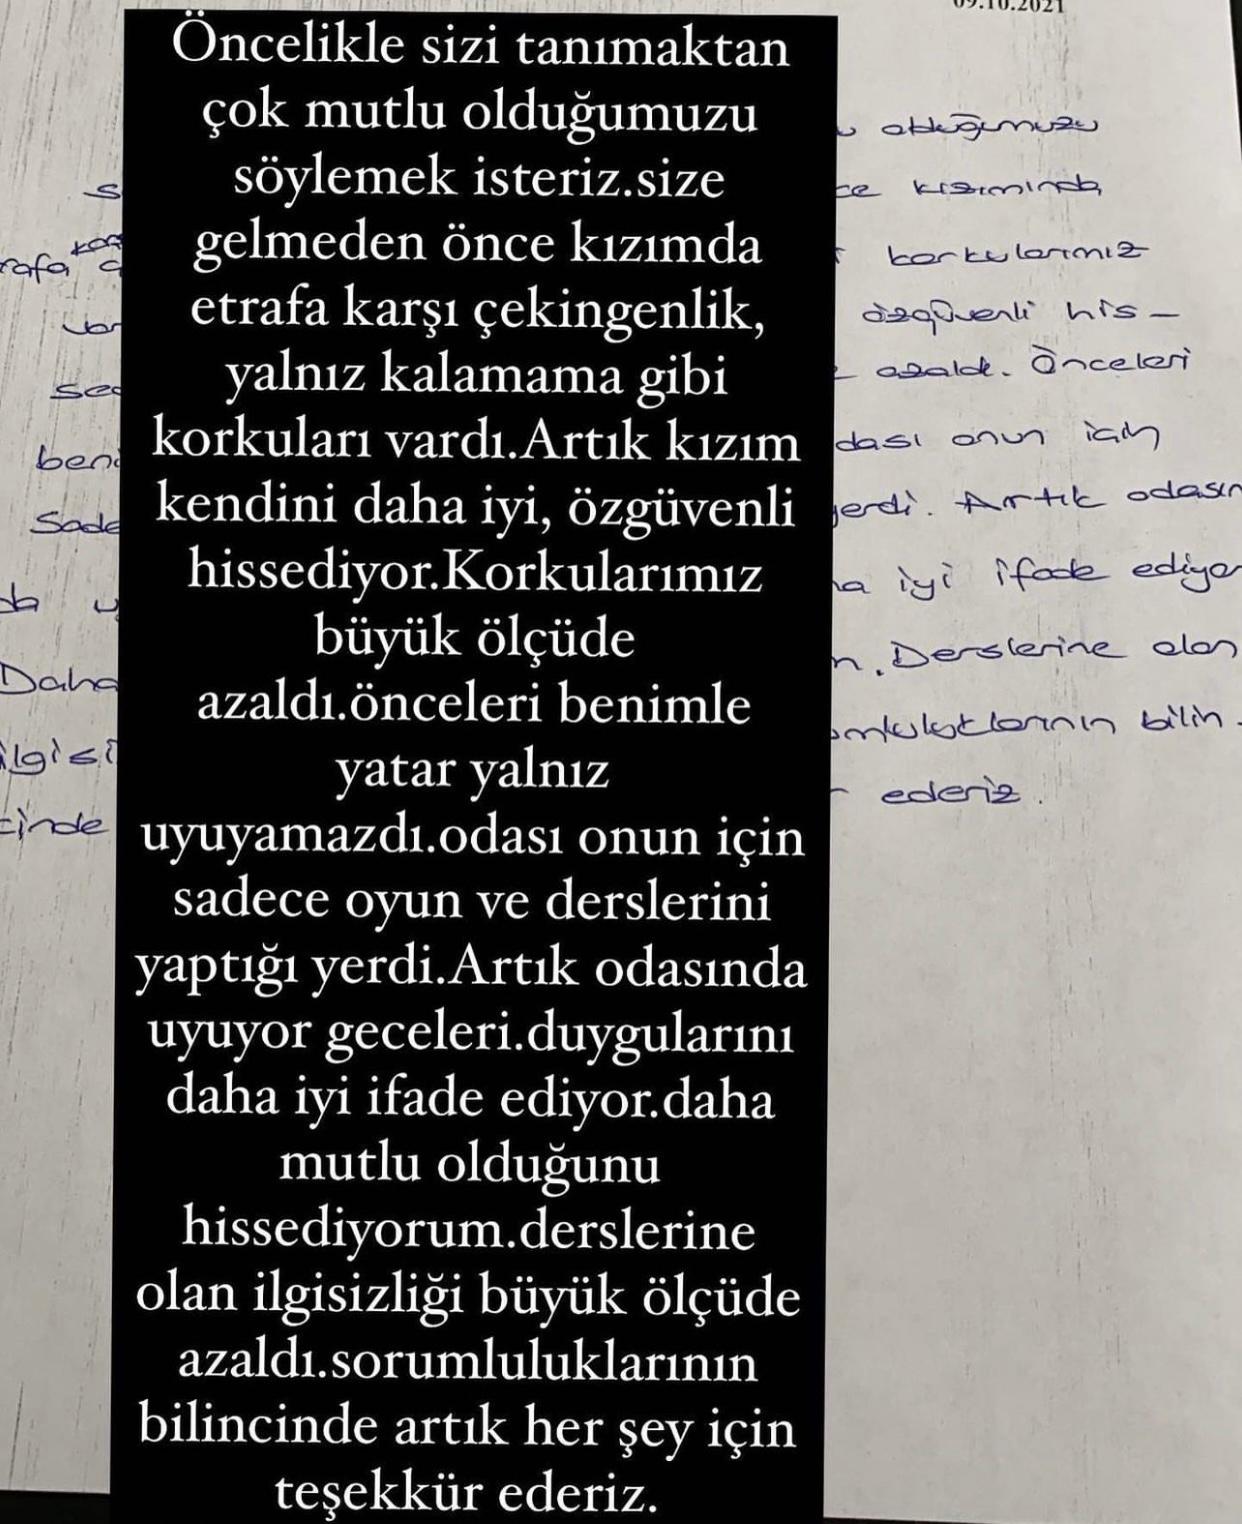 09.10.2021
Öncelikle sizi tanımaktan
çok mutlu olduğumuzu
söylemek isteriz.size
gelmeden önce kızımda
etrafa karşı çekingenlik,
yalnız kalamama gibi
korkuları vardı.Artık kızım
kendini daha iyi, özgüvenli
hissediyor.Korkularımız
büyük ölçüde
azaldı.önceleri benimle
yatar yalnız
uyuyamazdı.odası onun için
sadece oyun ve derslerini
yaptığı yerdi.Artık odasında
uyuyor geceleri.duygularını
daha iyi ifade ediyor.daha
mutlu olduğunu
hissediyorum.derslerine
olan ilgisizliği büyük ölçüde
azaldı.sorumluluklarının
bilincinde artık her şey için
teşekkür ederiz.
olduğumuzu
kızımında
korkularımız
özgüvenli his-
azaldı. Önceleri
dası onun için
yerdi. Artık odasın
iyi ifade ediyor
Derslerine olan
bilin-
ederiz.
Daha
ilgisi
cinde